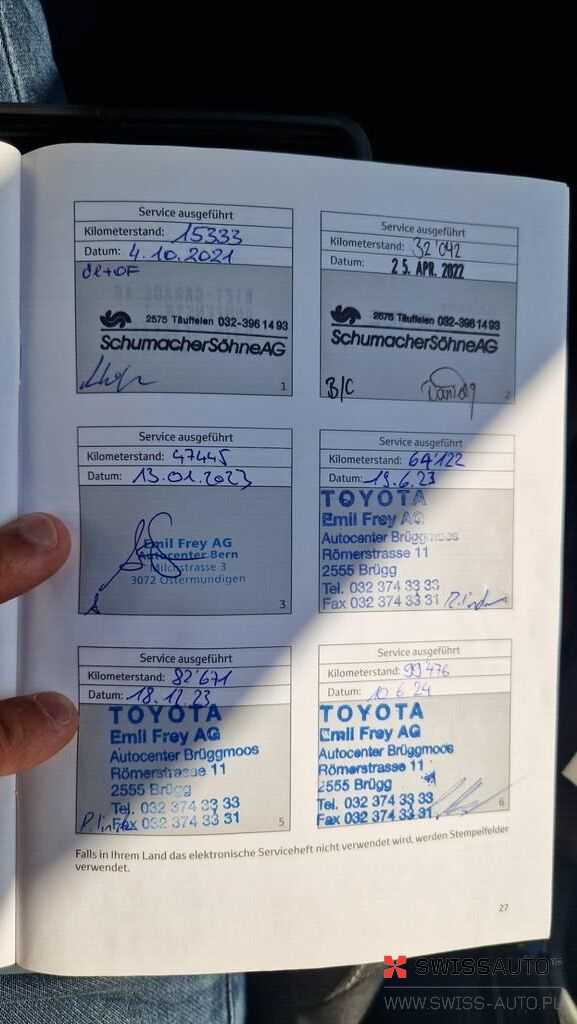 Service ausgeführt
Kilometerstand: 15333
Datum: 4.10.2021
öl+OF
2575 Täuffelen 032-396 14 93
SchumacherSöhneAG
1
Service ausgeführt
Kilometerstand: 32'042
Datum: 25. APR. 2022
2575 Täuffelen 032-396 14 93
SchumacherSöhneAG
B/C
2
Service ausgeführt
Kilometerstand: 47445
Datum: 13.01.2023
Emil Frey AG
Autocenter Bern
Milchstrasse 3
3072 Ostermundigen
3
Service ausgeführt
Kilometerstand: 64'122
Datum: 19.6.23
TOYOTA
Emil Frey AG
Autocenter Brüggmoos
Römerstrasse 11
2555 Brügg
Tel. 032 374 33 33
Fax 032 374 33 31
Service ausgeführt
Kilometerstand: 82'671
Datum: 18.12.23
TOYOTA
Emil Frey AG
Autocenter Brüggmoos
Römerstrasse 11
2555 Brügg
Tel. 032 374 33 33
Fax 032 374 33 31
5
Service ausgeführt
Kilometerstand: 99'476
Datum: 10.6.24
TOYOTA
Emil Frey AG
Autocenter Brüggmoos
Römerstrasse 11
2555 Brügg
Tel. 032 374 33 33
Fax 032 374 33 31
6
Falls in Ihrem Land das elektronische Serviceheft nicht verwendet wird, werden Stempelfelder
verwendet.
27
SWISSAUTO
WWW.SWISS-AUTO.PL